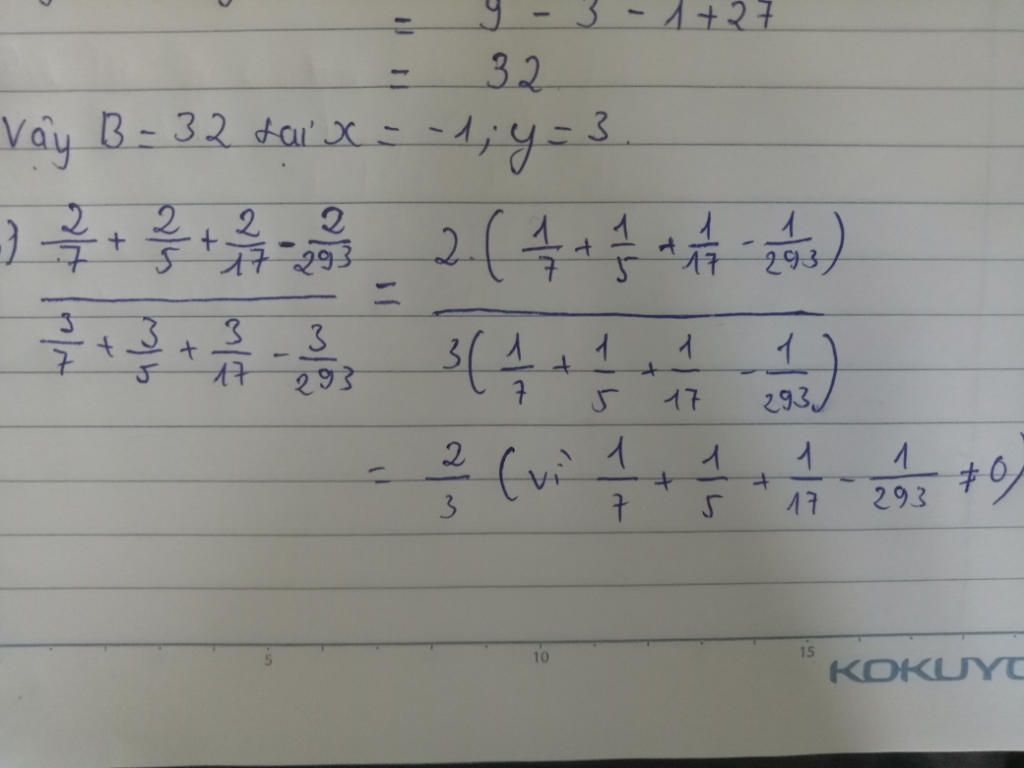 = 9 - 3 - 1 + 27
= 32
Vậy B = 32 tại x = -1; y = 3.
) 2/7 + 2/5 + 2/17 - 2/293 / 3/7 + 3/5 + 3/17 - 3/293 = 2.(1/7 + 1/5 + 1/17 - 1/293) / 3(1/7 + 1/5 + 1/17 - 1/293)
= 2/3 (vì 1/7 + 1/5 + 1/17 - 1/293 ≠ 0)
5 10 15
KOKUYO